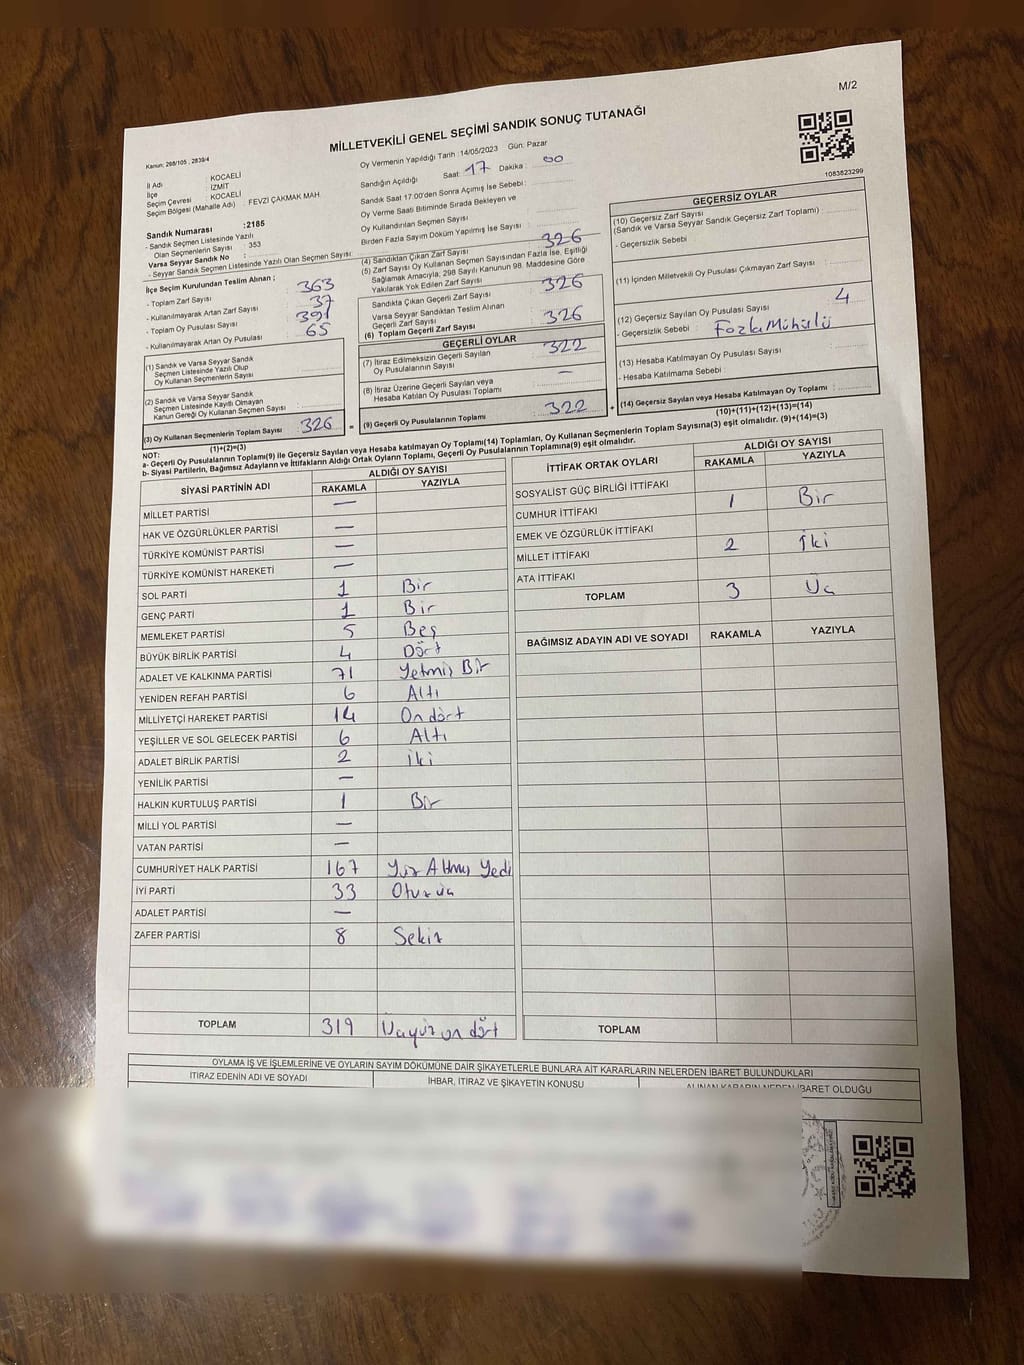 M/2
MİLLETVEKİLİ GENEL SEÇİMİ SANDIK SONUÇ TUTANAĞI
Kanun: 298/105 , 2839/4
Oy Vermenin Yapıldığı Tarih :14/05/2023 Gün: Pazar
İl Adı : KOCAELİ
İlçe : İZMİT
Seçim Çevresi : KOCAELİ
Seçim Bölgesi (Mahalle Adı) : FEVZİ ÇAKMAK MAH
Sandık Numarası :2185
- Sandık Seçmen Listesinde Yazılı
Olan Seçmenlerin Sayısı : 353
Varsa Seyyar Sandık No :
- Seyyar Sandık Seçmen Listesinde Yazılı Olan Seçmen Sayısı:
İlçe Seçim Kurulundan Teslim Alınan ;
- Toplam Zarf Sayısı : 363
- Kullanılmayarak Artan Zarf Sayısı : 37
- Toplam Oy Pusulası Sayısı : 391
- Kullanılmayarak Artan Oy Pusulası : 65
(1) Sandık ve Varsa Seyyar Sandık
Seçmen Listesinde Yazılı Olup
Oy Kullanan Seçmenlerin Sayısı :
(2) Sandık ve Varsa Seyyar Sandık
Seçmen Listesinde Kayıtlı Olmayan
Kanun Gereği Oy Kullanan Seçmen Sayısı :
(3) Oy Kullanan Seçmenlerin Toplam Sayısı : 326
(1)+(2)=(3)
Sandığın Açıldığı Saat: 17 Dakika : 00
Sandık Saat 17.00'den Sonra Açımış İse Sebebi :
Oy Verme Saati Bitiminde Sırada Bekleyen ve
Oy Kullandırılan Seçmen Sayısı :
Birden Fazla Sayım Döküm Yapılmış İse Sayısı :
(4) Sandıktan Çıkan Zarf Sayısı : 326
(5) Zarf Sayısı Oy Kullanan Seçmen Sayısından Fazla İse, Eşitliği
Sağlamak Amacıyla, 298 Sayılı Kanunun 98. Maddesine Göre
Yakılarak Yok Edilen Zarf Sayısı :
Sandıkta Çıkan Geçerli Zarf Sayısı : 326
Varsa Seyyar Sandıktan Teslim Alınan
Geçerli Zarf Sayısı :
(6) Toplam Geçerli Zarf Sayısı : 326
GEÇERLİ OYLAR
(7) İtiraz Edilmeksizin Geçerli Sayılan
Oy Pusulalarının Sayısı : 322
(8) İtiraz Üzerine Geçerli Sayılan veya
Hesaba Katılan Oy Pusulası Toplamı : —
= (9) Geçerli Oy Pusulalarının Toplamı : 322
1083823299
GEÇERSİZ OYLAR
(10) Geçersiz Zarf Sayısı
(Sandık ve Varsa Seyyar Sandık Geçersiz Zarf Toplamı) :
- Geçersizlik Sebebi :
(11) İçinden Milletvekili Oy Pusulası Çıkmayan Zarf Sayısı :
(12) Geçersiz Sayılan Oy Pusulası Sayısı : 4
- Geçersizlik Sebebi : Fazla Mühürlü
(13) Hesaba Katılmayan Oy Pusulası Sayısı :
- Hesaba Katılmama Sebebi :
+ (14) Geçersiz Sayılan veya Hesaba Katılmayan Oy Toplamı :
(10)+(11)+(12)+(13)=(14)
NOT:
a- Geçerli Oy Pusulalarının Toplamı(9) ile Geçersiz Sayılan veya Hesaba katılmayan Oy Toplamı(14) Toplamları, Oy Kullanan Seçmenlerin Toplam Sayısına(3) eşit olmalıdır. (9)+(14)=(3)
b- Siyasi Partilerin, Bağımsız Adayların ve İttifakların Aldığı Ortak Oyların Toplamı, Geçerli Oy Pusulalarının Toplamına(9) eşit olmalıdır.
SİYASİ PARTİNİN ADI ALDIĞI OY SAYISI
RAKAMLA YAZIYLA
MİLLET PARTİSİ —
HAK VE ÖZGÜRLÜKLER PARTİSİ —
TÜRKİYE KOMÜNİST PARTİSİ —
TÜRKİYE KOMÜNİST HAREKETİ —
SOL PARTİ 1 Bir
GENÇ PARTİ 1 Bir
MEMLEKET PARTİSİ 5 Beş
BÜYÜK BİRLİK PARTİSİ 4 Dört
ADALET VE KALKINMA PARTİSİ 71 Yetmiş Bir
YENİDEN REFAH PARTİSİ 6 Altı
MİLLİYETÇİ HAREKET PARTİSİ 14 On dört
YEŞİLLER VE SOL GELECEK PARTİSİ 6 Altı
ADALET BİRLİK PARTİSİ 2 iki
YENİLİK PARTİSİ —
HALKIN KURTULUŞ PARTİSİ 1 Bir
MİLLİ YOL PARTİSİ —
VATAN PARTİSİ —
CUMHURİYET HALK PARTİSİ 167 Yüz Altmış Yedi
İYİ PARTİ 33 Otuz üç
ADALET PARTİSİ —
ZAFER PARTİSİ 8 Sekiz
TOPLAM 319 Üçyüz on dört
İTTİFAK ORTAK OYLARI ALDIĞI OY SAYISI
RAKAMLA YAZIYLA
SOSYALİST GÜÇ BİRLİĞİ İTTİFAKI
CUMHUR İTTİFAKI 1 Bir
EMEK VE ÖZGÜRLÜK İTTİFAKI
MİLLET İTTİFAKI 2 İki
ATA İTTİFAKI
TOPLAM 3 Üç
BAĞIMSIZ ADAYIN ADI VE SOYADI RAKAMLA YAZIYLA
TOPLAM
OYLAMA İŞ VE İŞLEMLERİNE VE OYLARIN SAYIM DÖKÜMÜNE DAİR ŞİKAYETLERLE BUNLARA AİT KARARLARIN NELERDEN İBARET BULUNDUKLARI
İTİRAZ EDENİN ADI VE SOYADI İHBAR, İTİRAZ VE ŞİKAYETİN KONUSU ALINAN KARARIN NEDEN İBARET OLDUĞU